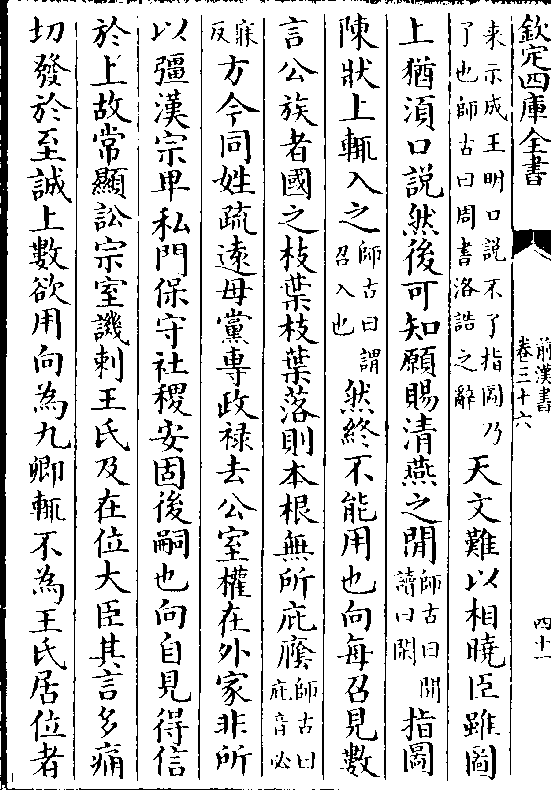 欽定四庫全書
前漢書
卷三十六
四十一
来示成王明口說不了指圖乃
了也師古曰周書洛誥之辭
天文難以相曉臣雖圖
上猶湏口説然後可知願賜清燕之閒
師古曰閒
讀曰閑
指圖
陳狀上輒入之
師古曰謂
召入也
然終不能用也向每召見數
言公族者國之枝葉枝葉落則本根無所庇廕
師古曰
庇音必
寐
反
方今同姓疏遠母黨専政禄去公室權在外家非所
以彊漢宗卑私門保守社稷安固後嗣也向自見得信
於上故常顯訟宗室譏刺王氏及在位大臣其言多痛
切發於至誠上數欲用向為九卿輒不為王氏居位者